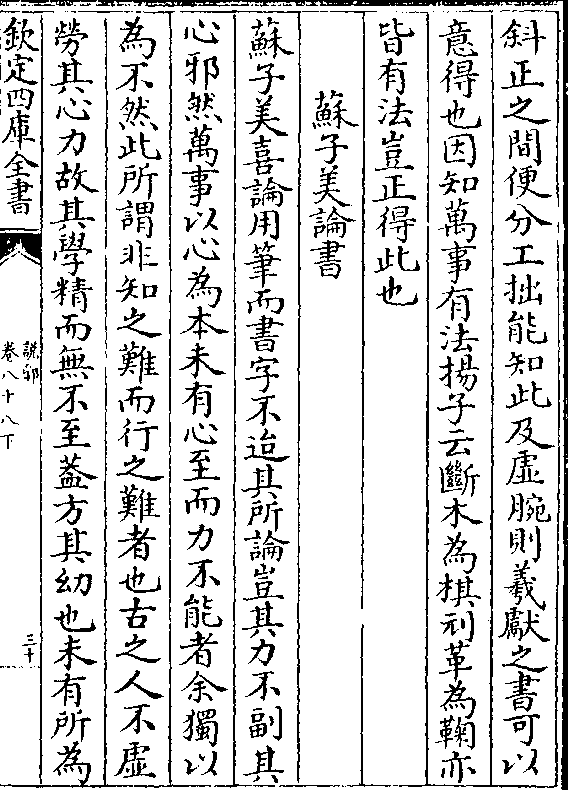 斜正之間便分工拙能知此及虛腕則羲獻之書可以
意得也因知萬事有法揚子云斷木為棋刓革為鞠亦
皆有法豈正得此也
蘇子美論書
蘇子美喜論用筆而書字不迨其所論豈其力不副其
心邪然萬事以心為本未有心至而力不能者余獨以
為不然此所謂非知之難而行之難者也古之人不虛
勞其心力故其學精而無不至葢方其幼也未有所為
欽定四庫全書
說郛
卷八十八下
三十